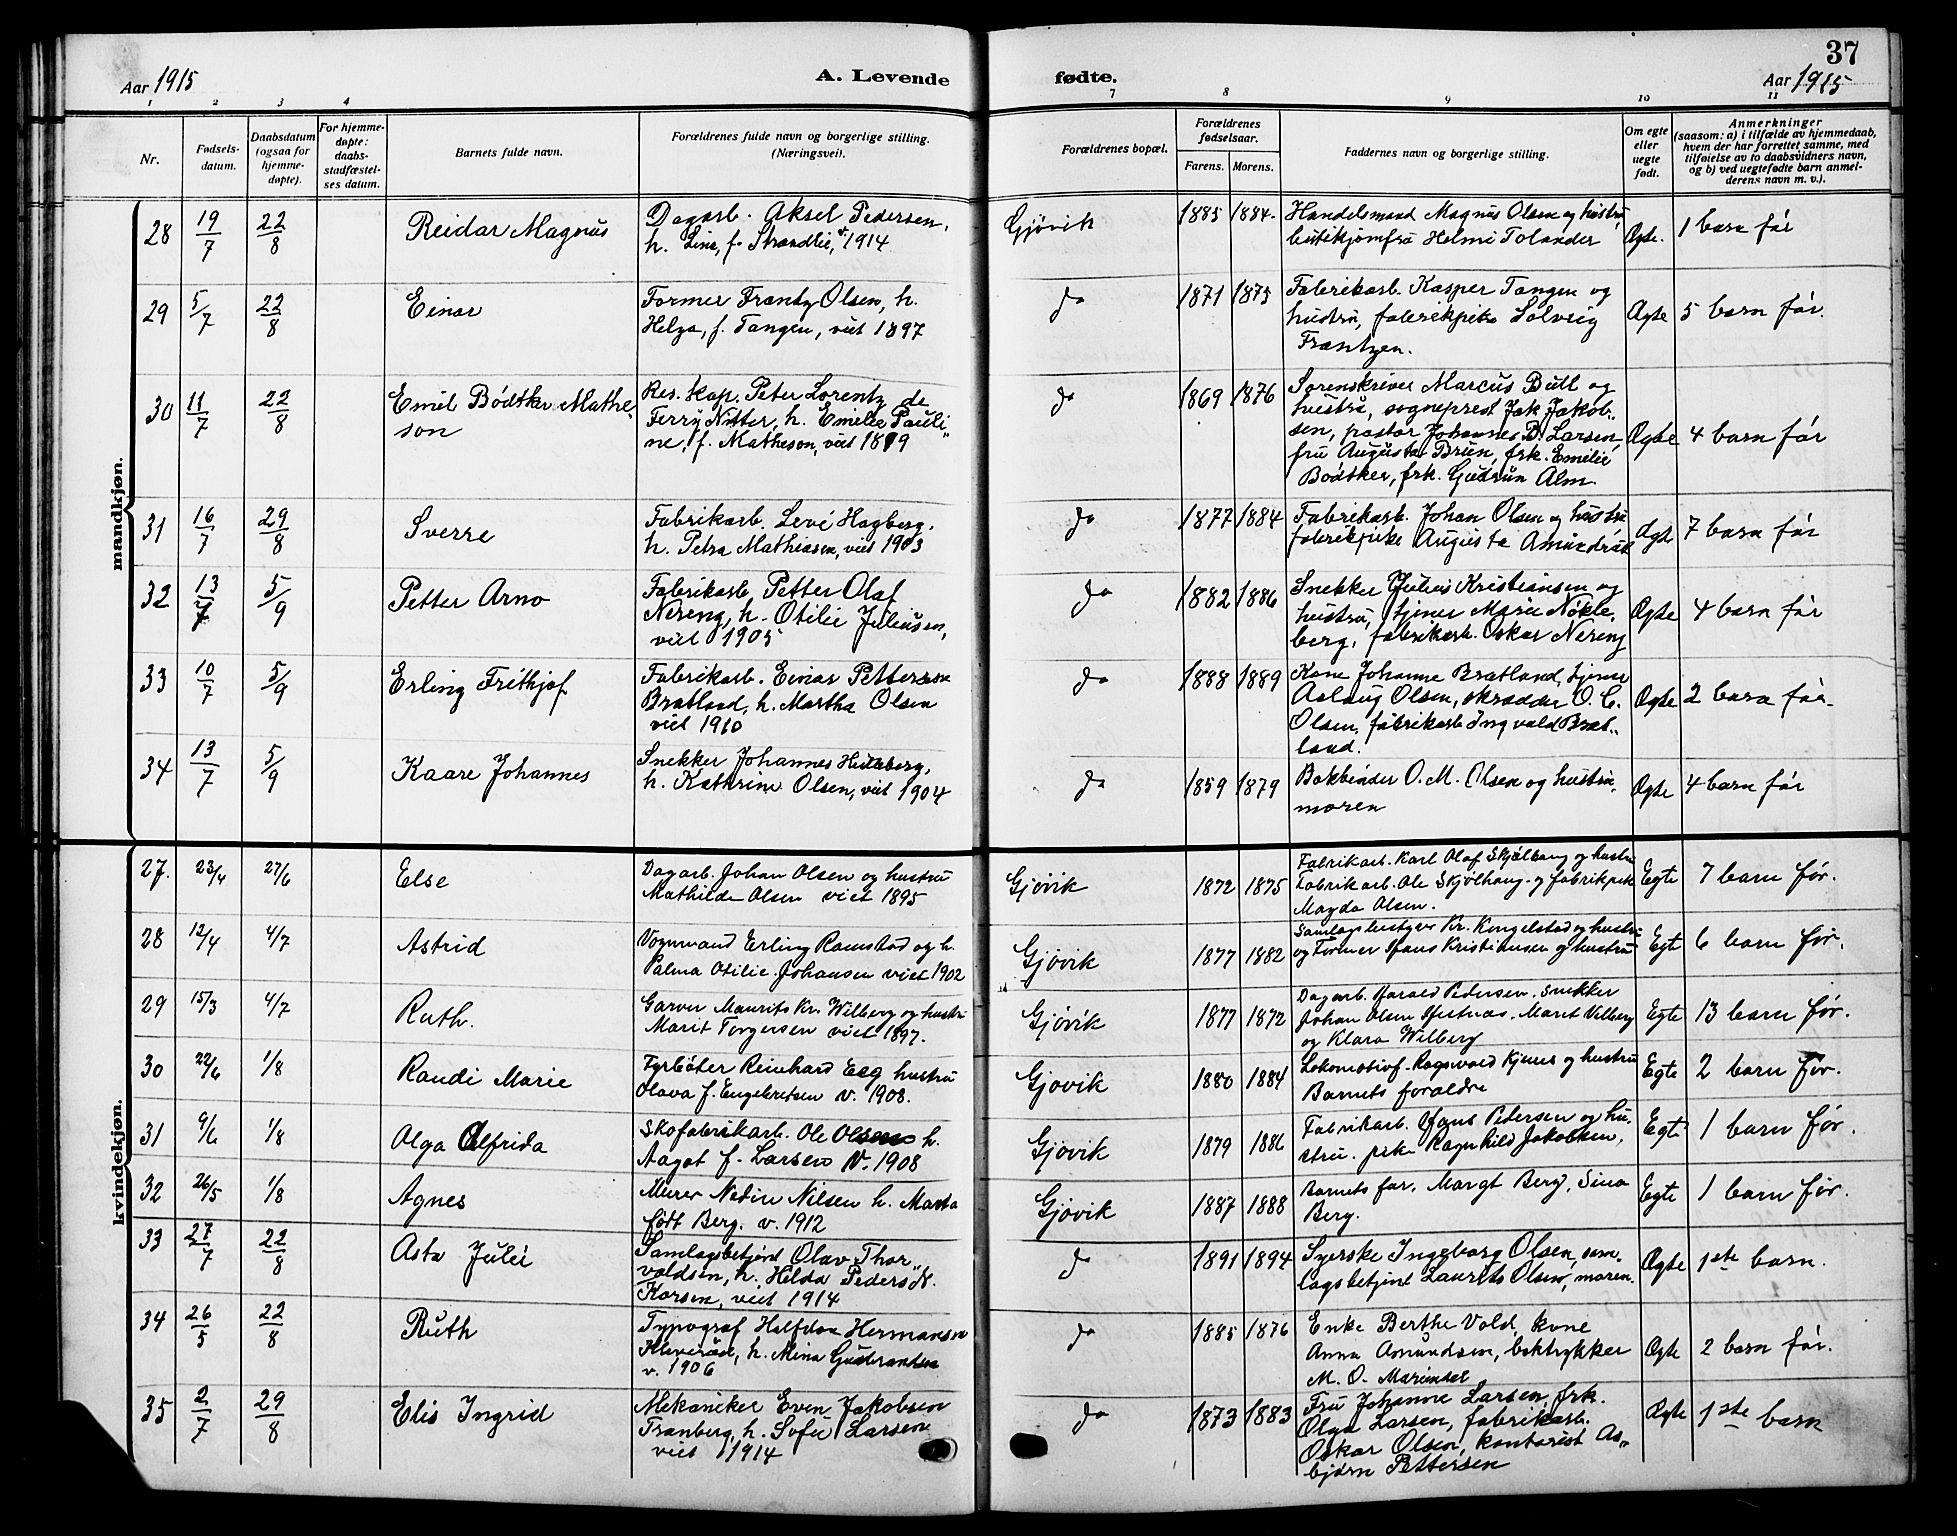 37
Aar 1915
A. Levende
fødte.
Aar 1915
1 2 3 4 7 8 9 10 11
Nr.
Fødsels-
datum.
Daabsdatum
(ogsaa for
hjemme-
døpte).
For hjemme-
døpte:
daabs-
stadfæstel-
ses datum.
Barnets fulde navn.
Forældrenes fulde navn og borgerlige stilling.
(Næringsvei).
Forældrenes bopæl.
Forældrenes
fødselsaar.
Farens. Morens.
Faddernes navn og borgerlige stilling.
Om egte
eller
uegte
født.
Anmerkninger
(saasom: a) i tilfælde av hjemmedaab,
hvem der har forrettet samme, med
tilføielse av to daabsvidners navn,
og b) ved uegtefødte barn anmel-
derens navn m. v.).
mandkjøn.
28 19/7 22/8 Reidar Magnus
Dagarb. Aksel Pedersen,
h. Lina, f. Strandlie, 1914
Gjøvik 1885 1884
Handelsmand Magnus Olsen og hustru,
butikjomfru Helmi Tolander
Ægte. 1 barn før
29 5/7 22/8 Einar
Former Frantz Olsen, h.
Helga, f. Tangen, viet 1897
do 1871 1875
Fabrikarb. Kasper Tangen og
hustru, fabrikpike Solveig
Frantzen.
Ægte 5 barn før.
30 11/7 22/8 Emil Bødtker Mathe-
son
Res. kap. Peter Lorentz de
Ferry Nitter, h. Emilie Pauli-
ne, f. Matheson, viet
do 1869 1876
Sorenskriver Marcus Bull og
hustru, sogneprest Jak Jakob-
sen, pastor Johannes B. Larsen,
fru Augusta Brun, frk. Emilie
Bødtker, frk. Gudrun Alm.
Ægte 4 barn før
31 16/7 29/8 Sverre
Fabrikarb. Levi Hagberg,
h. Petra Mathiasen, viet 1903
do 1877 1884
Fabrikarb. Johan Olsen og hustru
fabrikpike Augusta Amundrud
Ægte 7 barn før
32 13/7 5/9 Petter Arno
Fabrikarb. Petter Olaf
Nereng, h. Otilie Juliussen,
viet 1905
do 1882 1886
Snekker Julius Kristiansen og
hustru, tjener Marie Nøkle-
berg, fabrikarb. Oskar Nereng
Ægte 4 barn før
33 10/7 5/9 Erling Frithjof
Fabrikarb. Einar Pettersen
Bratland, h. Martha Olsen
viet 1910
do 1888 1889
Kone Johanne Bratland, tjener
Aslaug Olsen, skrædder O. C.
Olsen, fabrikarb. Ingvald Brat-
land.
Ægte 2 barn før.
34 13/7 5/9 Kaare Johannes
Snekker Johannes
h. Kathrine Olsen, viet 1904
do 1859 1879
Bokbinder O. M. Olsen og hustru,
moren
Ægte 4 barn før
kvindekjøn.
27. 23/4 27/6 Else
Dagarb. Johan Olsen og hustru
Mathilde Olsen viet 1895
Gjøvik 1872 1875
Fabrikarb. Karl Olaf Skjølhaug og hustru
Fabrikarb. Ole Skjølhaug og fabrikpike
Magda Olsen.
Egte 7 barn før.
28 12/4 4/7 Astrid
Vognmand Erling Ramstad og h.
Palma Otilie Johansen viet 1902
Gjøvik 1877 1882
Samlagsbestyrer Kr. Ringelstad og hustru
og Former Hans Kristiansen og hustru
Egte 6 barn før.
29 15/3 4/7 Ruth.
Garver Maurits Kr. Wilberg og hustru
Marit Torgersen viet 1897.
Gjøvik 1877 1872
Dagarb. Harald Pedersen, snekker
Johan Olsen, Marit Vilberg
og Klara Wilberg
Egte 13 barn før.
30 22/6 1/8 Randi Marie
Fyrbøter Reinhard Eeg hustru
Olava f. Engebretsen v. 1908.
Gjøvik 1880 1884
Lokomotivf. Ragnvald Kjenes og hustru
Barnets forældre
Egte 2 barn før.
31 9/6 1/8 Olga Alfrida
Skofabrikarb. Ole Olsen h.
Aagot f. Larsen v. 1908
Gjøvik 1879 1886
Fabrikarb. Hans Pedersen og hu-
stru. pike Ragnhild Jakobsen,
Egte 1 barn før.
32 26/5 1/8 Agnes
Murer Nedin Nilsen h. Marta
født Berg. v. 1912
Gjøvik 1887 1888
Barnets far, Margt Berg, Sina
Berg.
Egte 1 barn før.
33 27/7 22/8 Asta Julie
Samlagsbetjent Olav Thor-
valdsen, h. Hilda Peders N.
Korsen, viet 1914
do 1891 1894
Syerske Ingeborg Olsen, sam-
lagsbetjent Laurits Olsen, moren.
Ægte 1ste barn.
34 26/5 22/8 Ruth
Typograf Halfdan Hermansen
Kleverud, h. Mina Gudbrandsen
v. 1906
do 1885 1876
Enke Berthe Vold, kone
Anna Amundsen, boktrykker
M. O. Mariendal
Ægte 2 barn før.
35 2/7 29/8 Elis Ingrid
Mekaniker Even Jakobsen
Tranberg, h. Sofie Larsen
viet 1914
do 1873 1883
Fru Johanne Larsen, frk.
Olga Larsen, fabrikarb.
Oskar Olsen, kontorist As-
bjørn Pettersen
Ægte 1ste barn